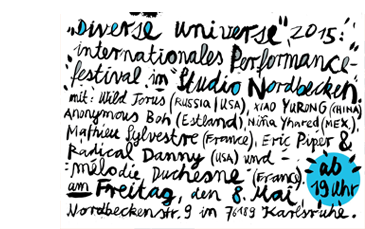 „Diverse universe", 2015:
internationales Performance-
festival im "Studio Nordbecken"
mit: Wild Torus (RUSSIA|USA), XIAO YURONG (CHINA)
Anonymous Boh (Estland), Niña Yhared (MEX.),
Mathieu Sylvestre (France), Eric Piper &
Radical Danny (USA) und
mélodie Duchesne (France).
am Freitag, den 8. Mai,
ab
19 Uhr
Nordbeckenstr. 9 in 76189 Karlsruhe.